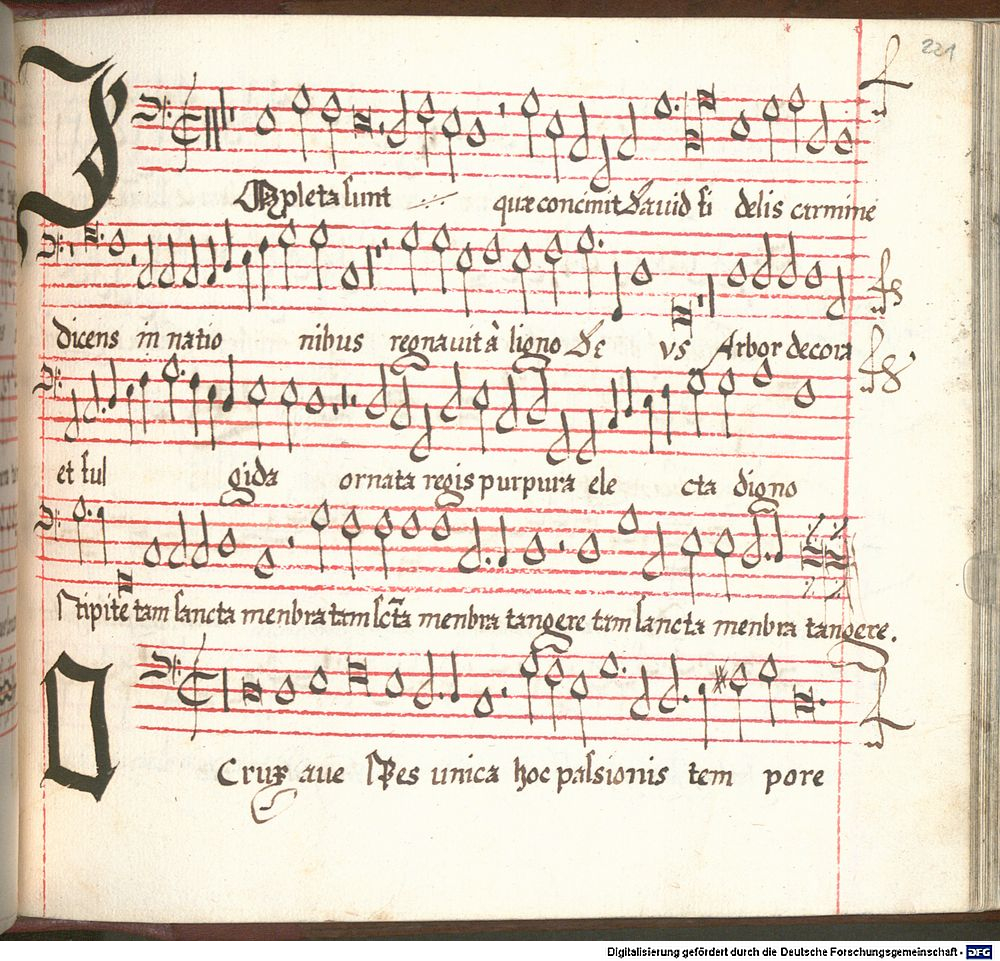 221
Impleta sunt ·/· quæ concinit Dauid fidelis carmine
dicens in nationibus regnauit à ligno Devs Arbor decora
et fulgida ornata regis purpura electa digno
Stipite tam sancta menbra tam scta menbra tangere tam sancta menbra tangere.
O Crux aue Spes unica hoc passionis tempore
Digitalisierung gefördert durch die Deutsche Forschungsgemeinschaft - DFG